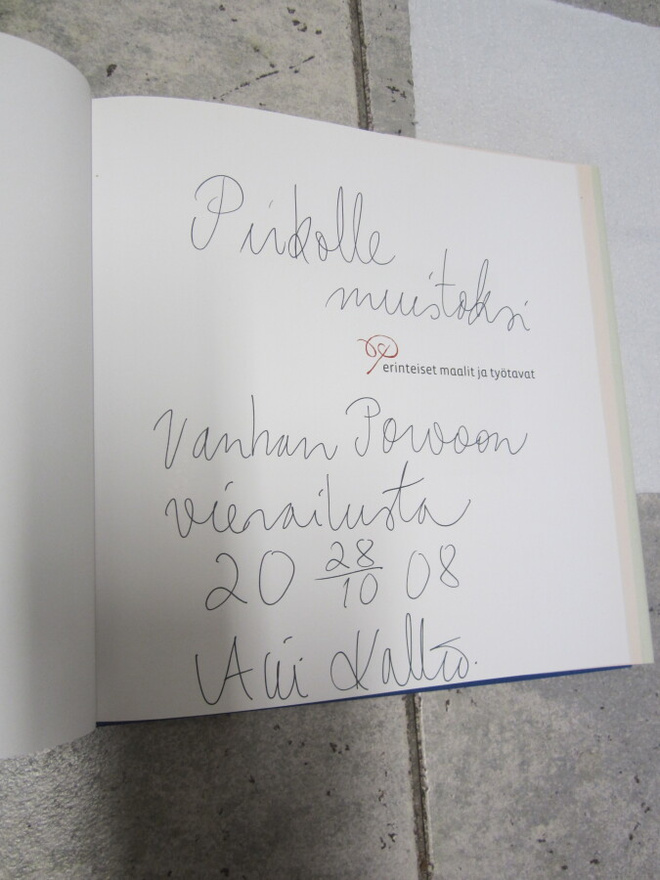 Pirkolle
muistoksi
Perinteiset maalit ja työtavat
Vanhan Porvoon
vierailusta
20 28/10 08
Kallio.